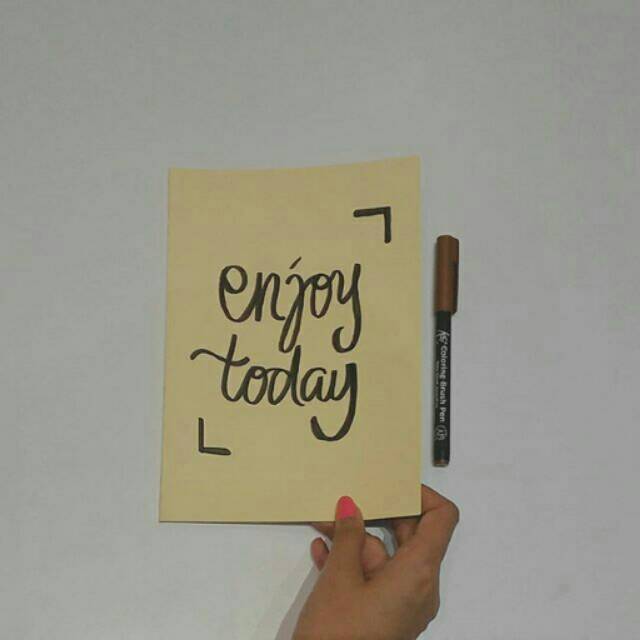 enjoy
today
Coloring Brush Pen